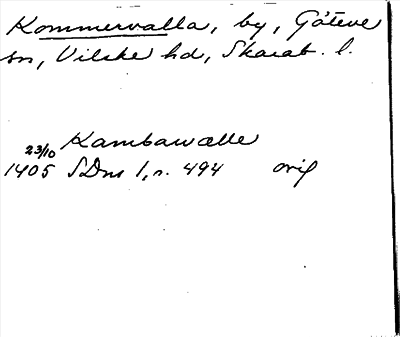 Kommervalla, by, Göteve
sn, Vilske hd, Skarab. l.
Kambawalle
23/10
1405 SDns 1, s. 494 orig